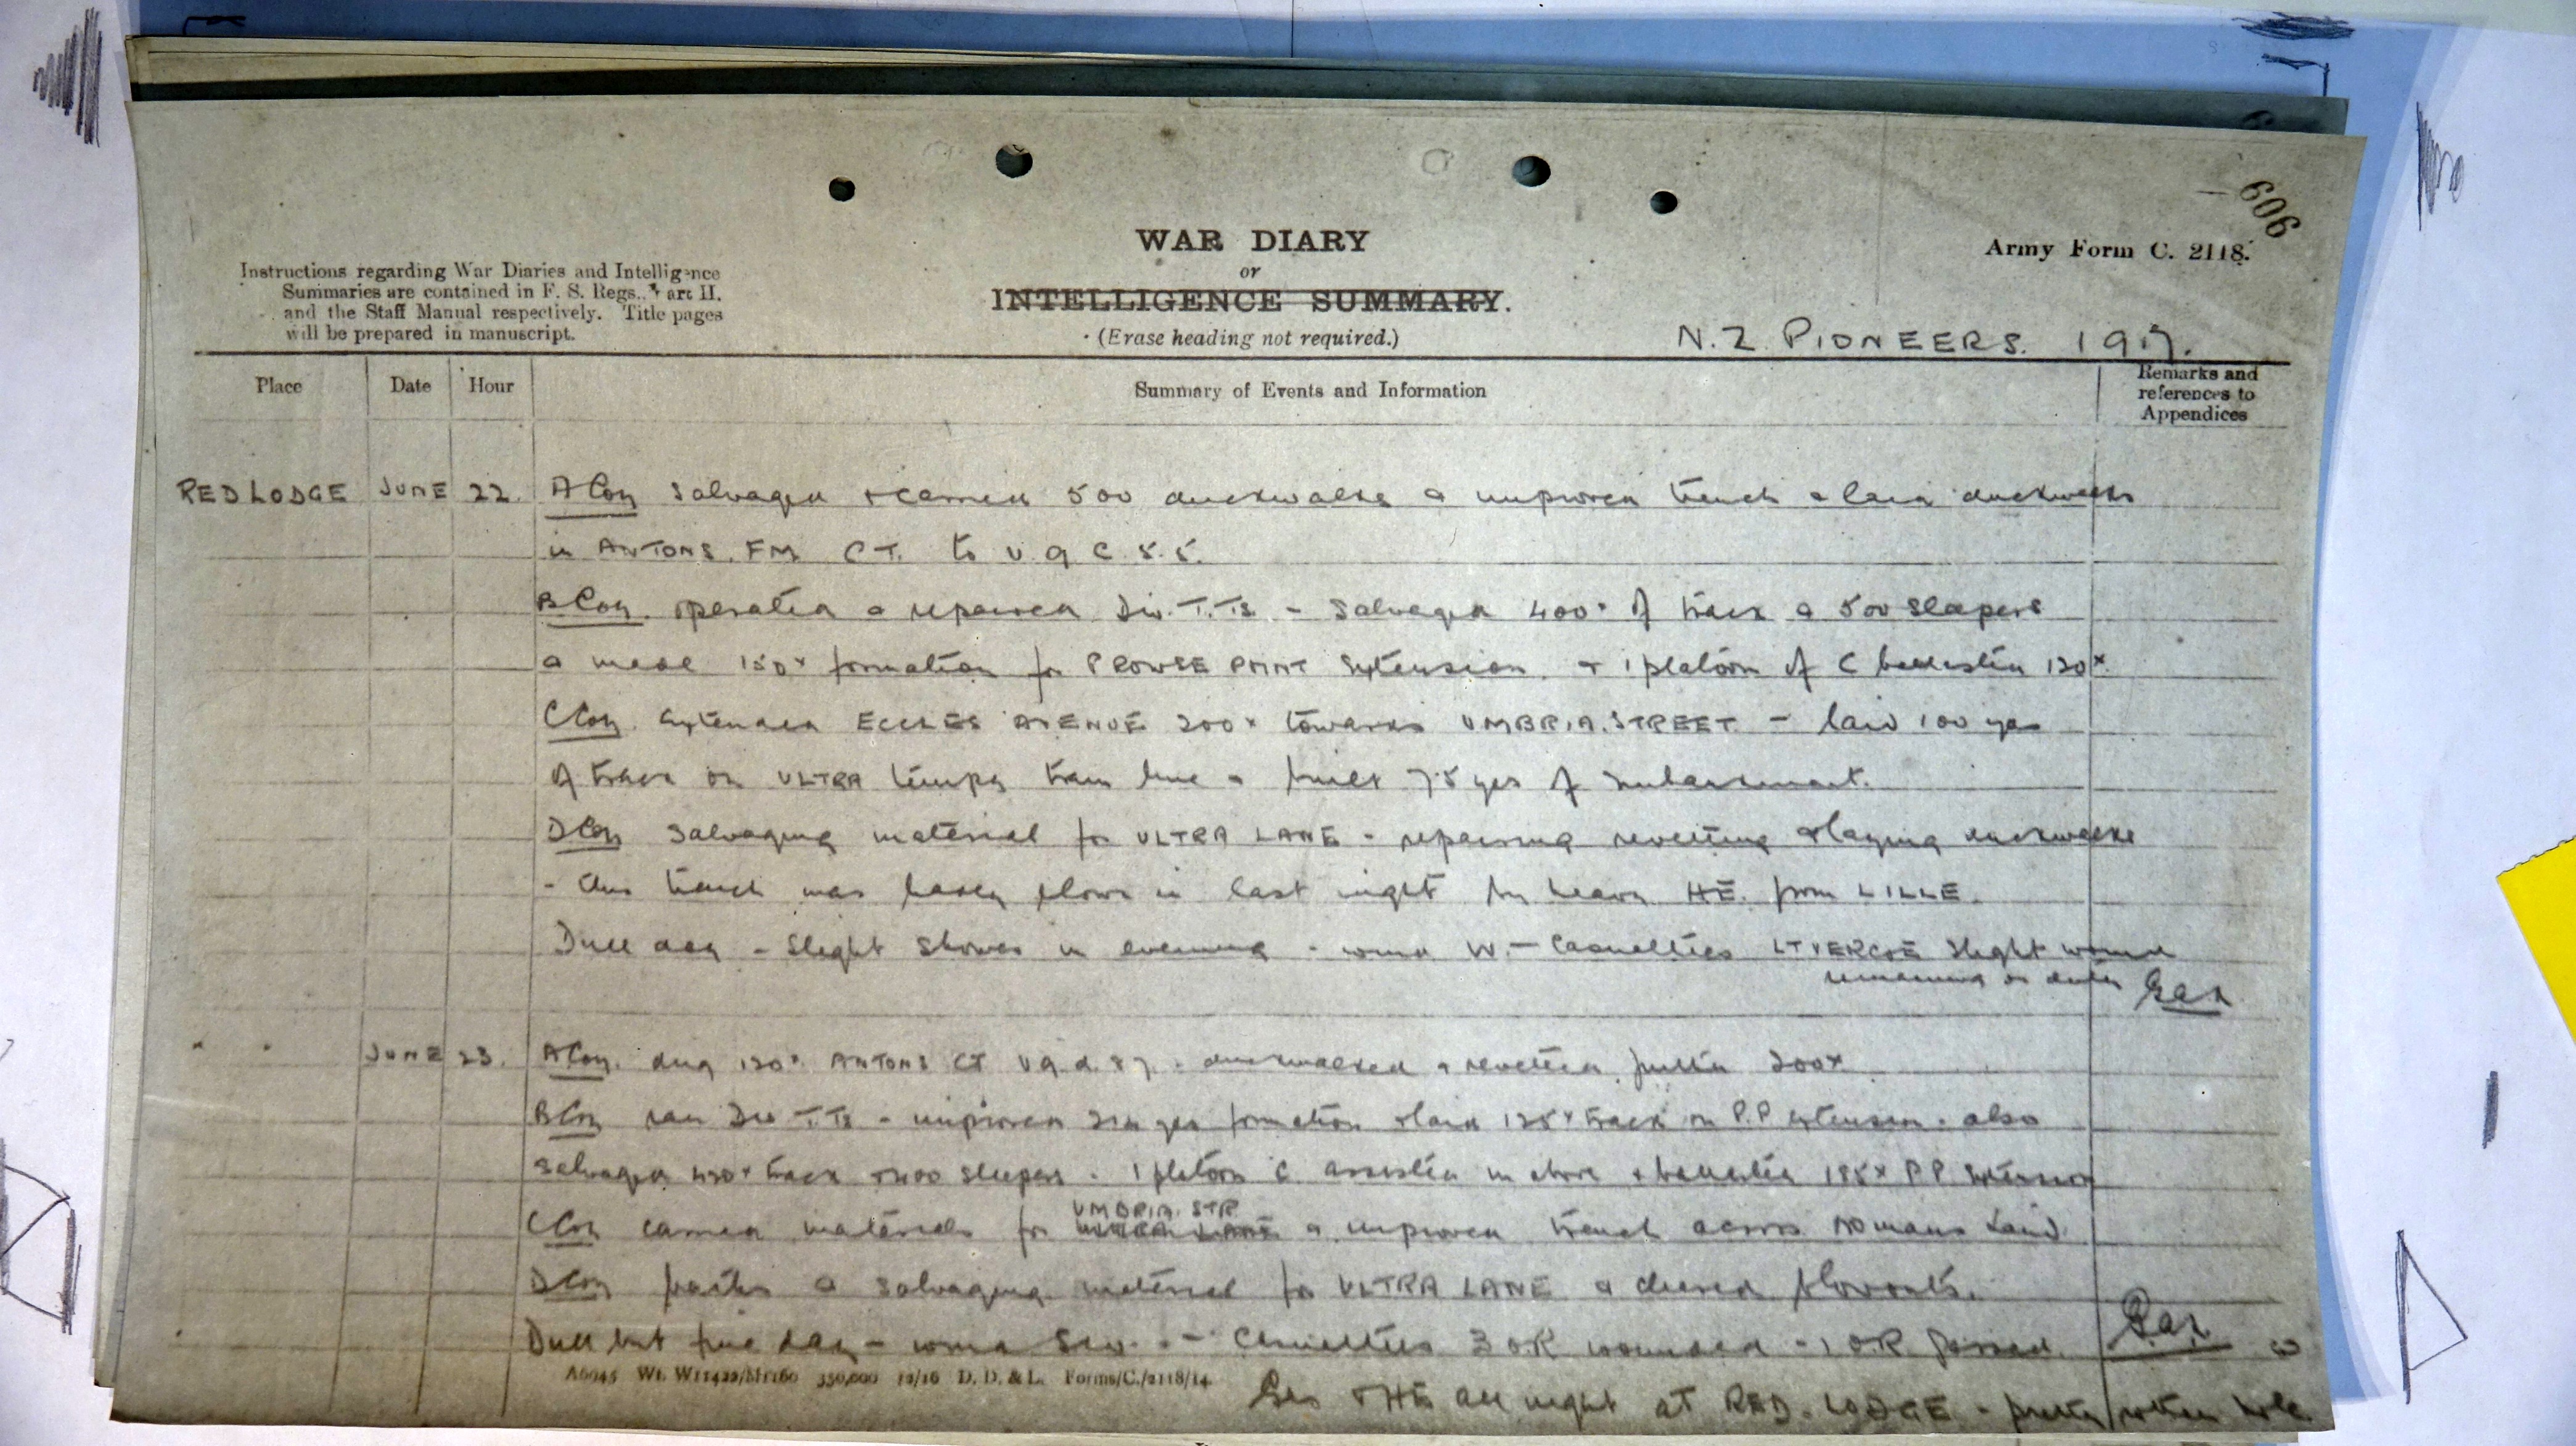 606
WAR DIARY
or
INTELLIGENCE SUMMARY.
(Erase heading not required.)
Army Form C. 2118.
Instructions regarding War Diaries and Intelligence
Summaries are contained in F. S. Regs., Part II.
and the Staff Manual respectively. Title pages
will be prepared in manuscript.
N.Z. PIONEERS. 1917.
Place Date Hour Summary of Events and Information Remarks and
references to
Appendices
RED LODGE JUNE 22. A Coy salvaged & carried 500 duckwalks & improved trench & laid duckwalks
in ANTONS. FM. C.T. to U 9 c 5.5.
B Coy. operated & repaired Div. T.Ts - Salvaged 400x of track & 500 sleepers
& made 150x formation for PROWSE POINT Extension. & 1 platoon of C ballasted 120x.
C Coy. Extended ECCLES AVENUE 200x towards UMBRIA. STREET - laid 100 yds
of track on ULTRA tempy tram line & built 75 yds of embankment.
D Coy Salvaging material for ULTRA LANE - repairing revetting & laying duckwalks
- this trench was badly blown in last night by heavy HE. from LILLE.
Dull day - Slight shower in evening - wind W. - Casualties LT VERCOE slight wound
remaining on duty
" " JUNE 23. A Coy. dug 120x ANTONS CT U 9 d. 8 7. duckwalked & revetted further 200x
B Coy ran Div T.Ts - improved yds formation & laid 125x track on P.P extension. also
Salvaged 450x track & 400 sleepers. 1 platoon C assisted in above & ballasted 185x P P Extension
UMBRIA. STR
C Coy carried materials for ULTRA LANE & improved trench across NO mans Land.
D Coy parties & salvaging material for ULTRA LANE & cleared blowouts.
Dull but fine day - wind SW. - Casualties 3 O.R wounded - 1 O.R gassed.
A6945 Wt. W11422/M1160 350,000 12/16 D. D. & L. Forms/C./2118/14.
Gas & HE all night at RED. LODGE - pretty rotten hole.